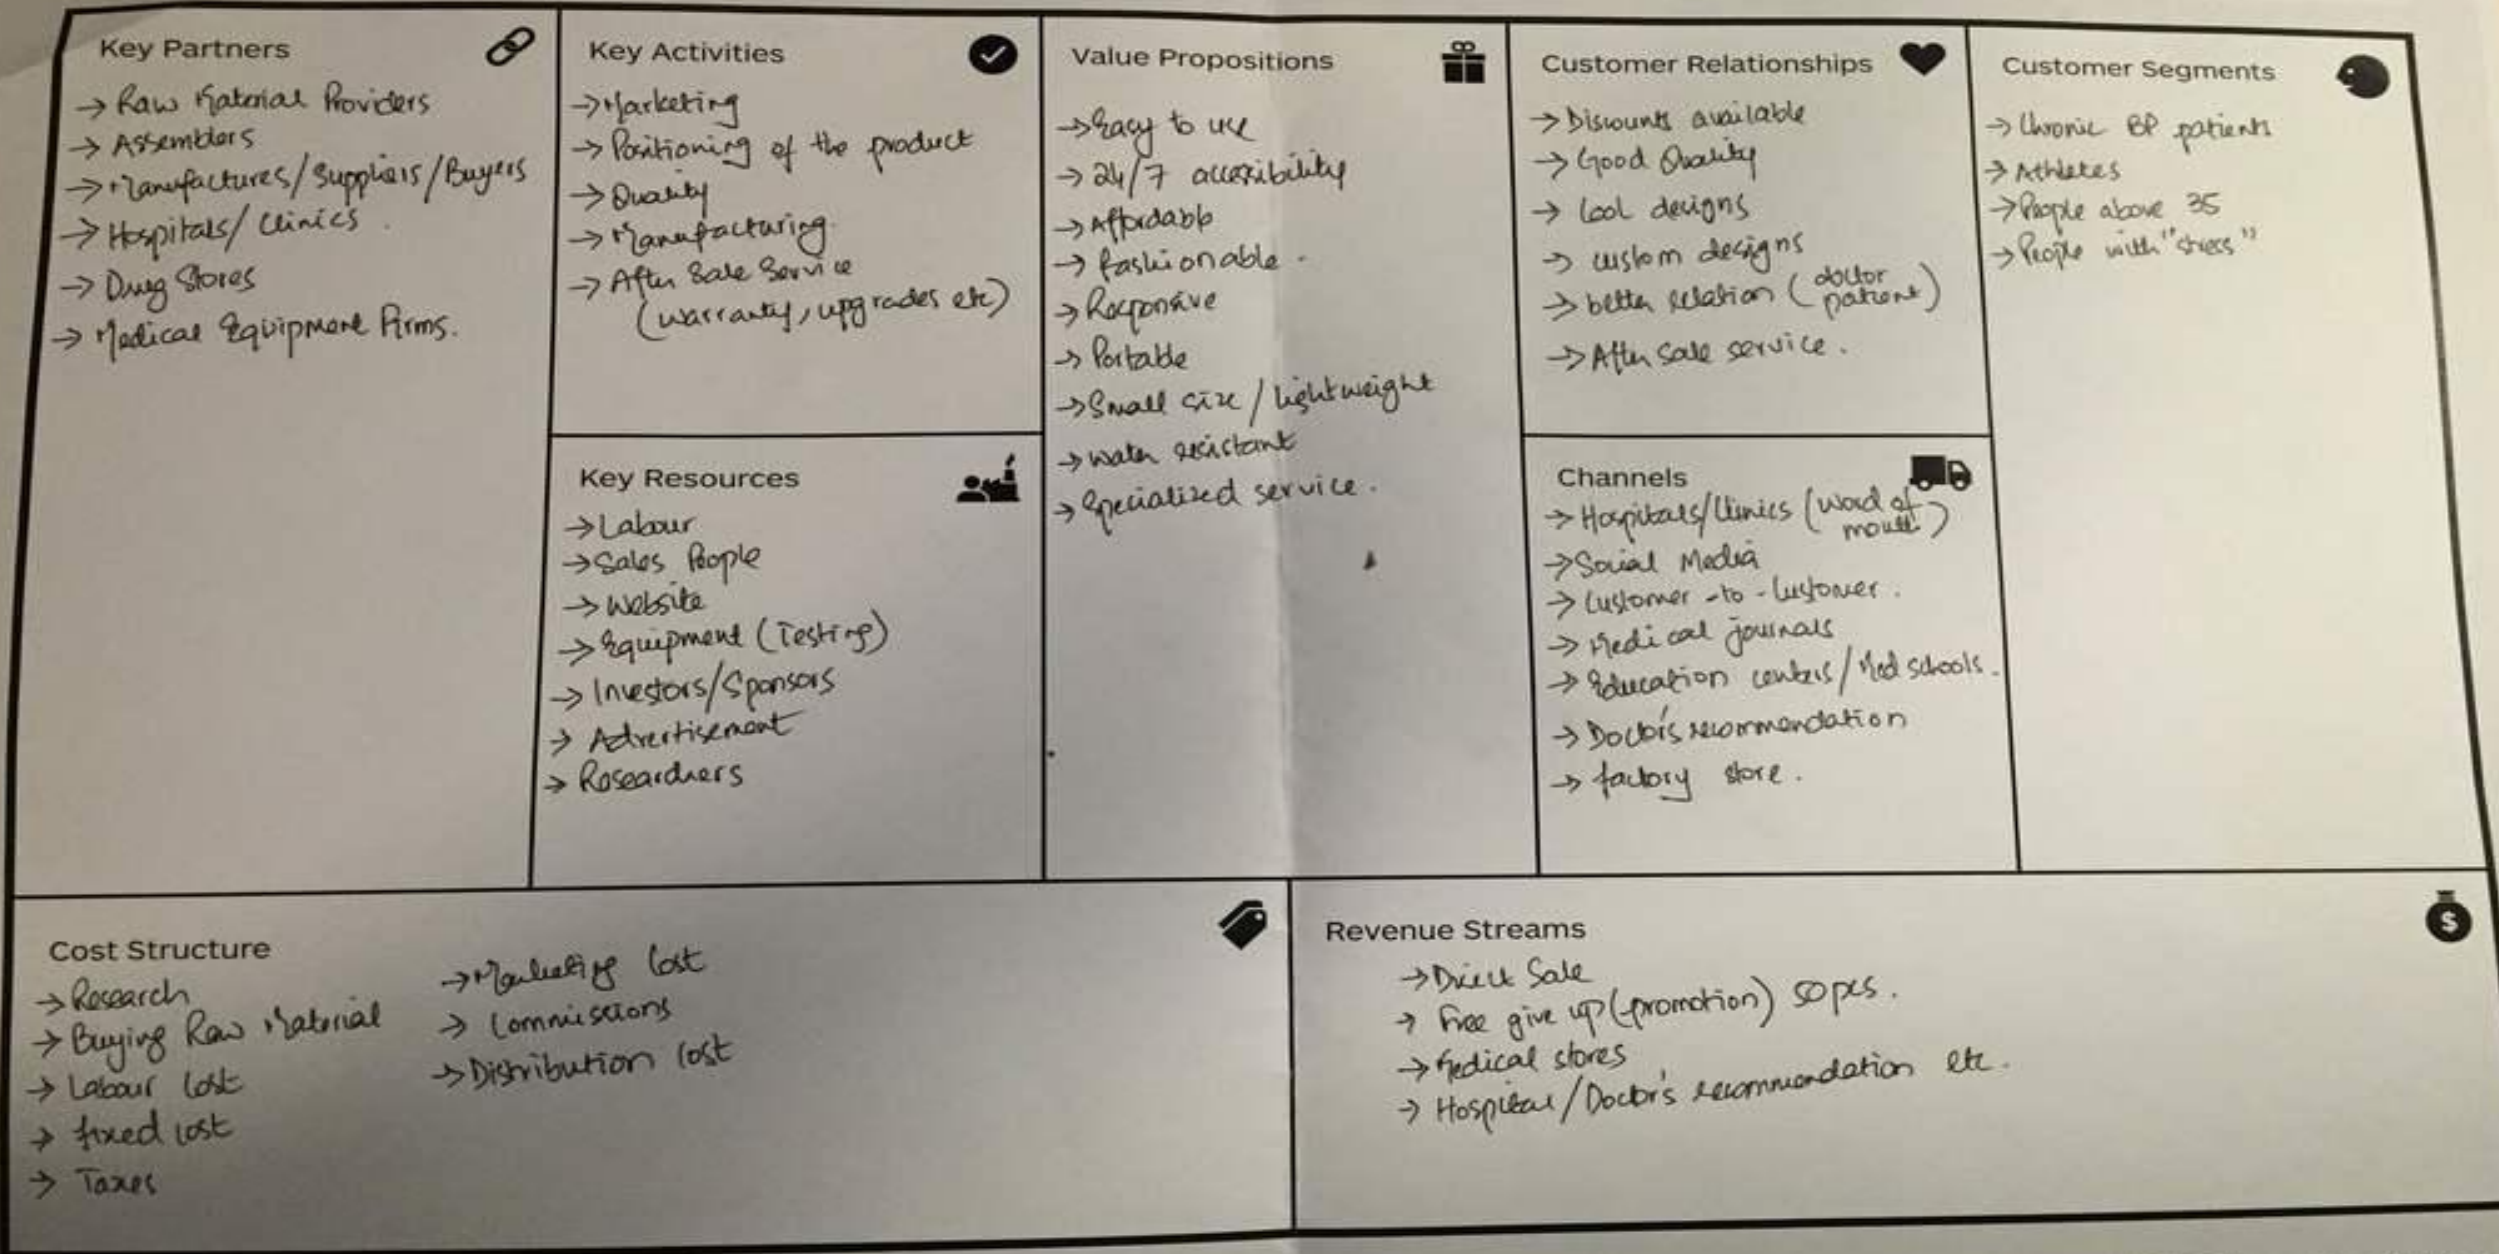 Key Partners
→ Raw Material Providers
→ Assemblers
→ Manufactures/Suppliers/Buyers
→ Hospitals/Clinics.
→ Drug Stores
→ Medical Equipment Firms.
Key Activities
→ Marketing
→ Positioning of the product
→ Quality
→ Manufacturing.
→ After Sale Service
(warranty, upgrades etc)
Key Resources
→ Labour
→ Sales People
→ Website
→ Equipment (Testing)
→ Investors/Sponsors
→ Advertisement
→ Researchers
Value Propositions
→ Easy to use
→ 24/7 accessibility
→ Affordable
→ fashionable.
→ Responsive
→ Portable
→ Small size / lightweight
→ water resistant
→ Specialized service.
Customer Relationships
→ Discounts available
→ Good Quality
→ Cool designs
→ custom designs
→ better relation (doctor
patient)
→ After sale service.
Channels
→ Hospitals/Clinics (word of
mouth)
→ Social Media
→ Customer-to-Customer.
→ Medical journals
→ Education centers/Med schools.
→ Doctor's recommendation
→ factory store.
Customer Segments
→ Chronic BP patients
→ Athletes
→ People above 35
→ People with "stress"
Cost Structure
→ Research
→ Buying Raw Material
→ Labour Cost
→ fixed cost
→ Taxes
→ Marketing Cost
→ Commissions
→ Distribution Cost
Revenue Streams
$
→ Direct Sale
→ Free give up (promotion) 50 pcs.
→ Medical stores
→ Hospital/Doctor's recommendation etc.